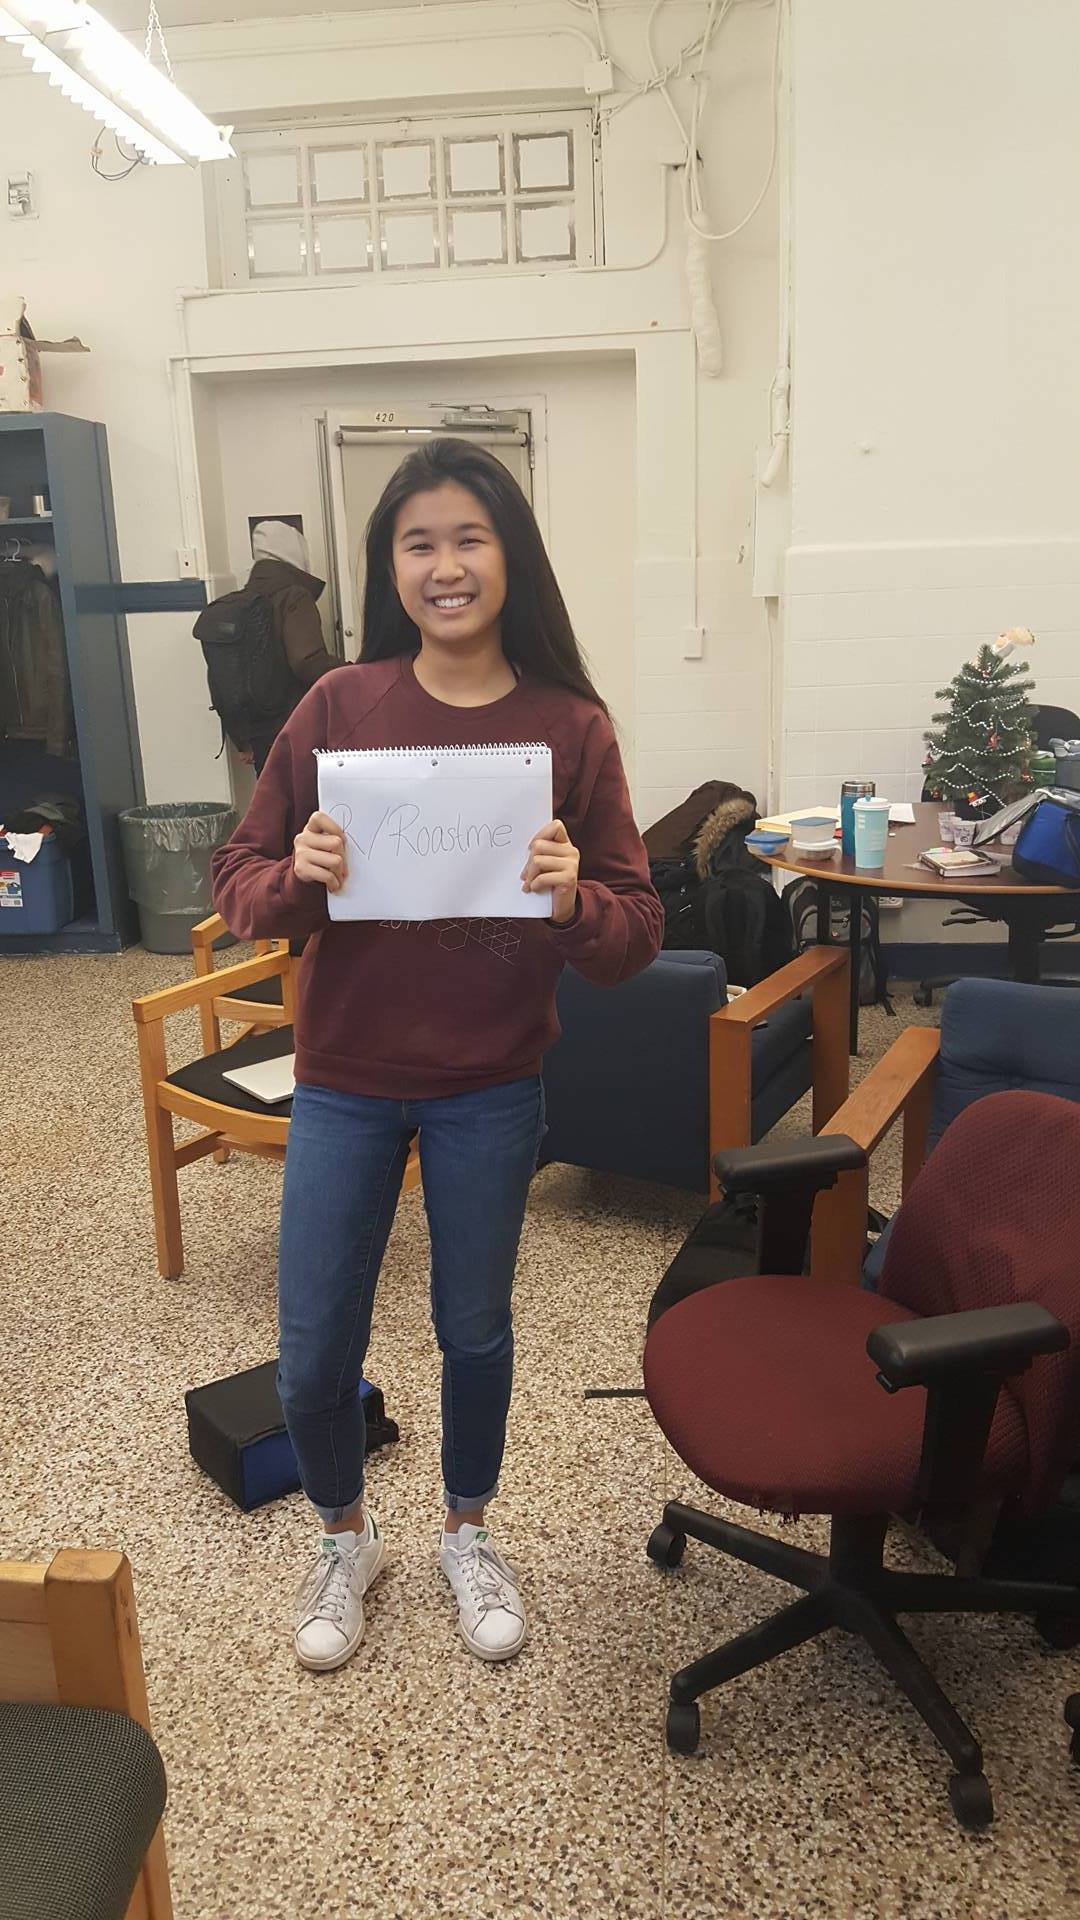 420
R/Roastme
2017